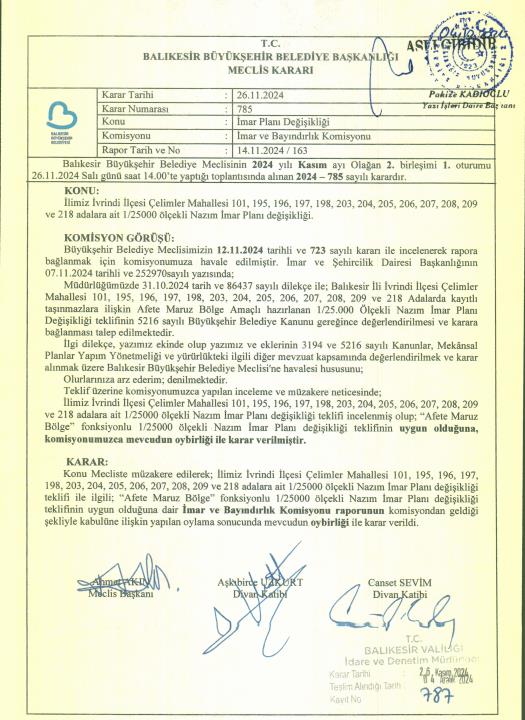 ASLI GİBİDİR
04.12.2024
Pakize KADIOĞLU
Yazı İşleri Daire Başkanı
T.C.
BALIKESİR BÜYÜKŞEHİR BELEDİYE BAŞKANLIĞI
MECLİS KARARI
BALIKESİR
BÜYÜKŞEHİR
BELEDİYESİ
Karar Tarihi : 26.11.2024
Karar Numarası : 785
Konu : İmar Planı Değişikliği
Komisyonu : İmar ve Bayındırlık Komisyonu
Rapor Tarih ve No : 14.11.2024 / 163
Balıkesir Büyükşehir Belediye Meclisinin 2024 yılı Kasım ayı Olağan 2. birleşimi 1. oturumu
26.11.2024 Salı günü saat 14.00'te yaptığı toplantısında alınan 2024 – 785 sayılı karardır.
KONU:
İlimiz İvrindi İlçesi Çelimler Mahallesi 101, 195, 196, 197, 198, 203, 204, 205, 206, 207, 208, 209
ve 218 adalara ait 1/25000 ölçekli Nazım İmar Planı değişikliği.
KOMİSYON GÖRÜŞÜ:
Büyükşehir Belediye Meclisimizin 12.11.2024 tarihli ve 723 sayılı kararı ile incelenerek rapora
bağlanmak için komisyonumuza havale edilmiştir. İmar ve Şehircilik Dairesi Başkanlığının
07.11.2024 tarihli ve 252970sayılı yazısında;
Müdürlüğümüzde 31.10.2024 tarih ve 86437 sayılı dilekçe ile; Balıkesir İli İvrindi İlçesi Çelimler
Mahallesi 101, 195, 196, 197, 198, 203, 204, 205, 206, 207, 208, 209 ve 218 Adalarda kayıtlı
taşınmazlara ilişkin Afete Maruz Bölge Amaçlı hazırlanan 1/25.000 Ölçekli Nazım İmar Planı
Değişikliği teklifinin 5216 sayılı Büyükşehir Belediye Kanunu gereğince değerlendirilmesi ve karara
bağlanması talep edilmektedir.
İlgi dilekçe, yazımız ekinde olup yazımız ve eklerinin 3194 ve 5216 sayılı Kanunlar, Mekânsal
Planlar Yapım Yönetmeliği ve yürürlükteki ilgili diğer mevzuat kapsamında değerlendirilmek ve karar
alınmak üzere Balıkesir Büyükşehir Belediye Meclisi'ne havalesi hususunu;
Olurlarınıza arz ederim; denilmektedir.
Teklif üzerine komisyonumuzca yapılan inceleme ve müzakere neticesinde;
İlimiz İvrindi İlçesi Çelimler Mahallesi 101, 195, 196, 197, 198, 203, 204, 205, 206, 207, 208, 209
ve 218 adalara ait 1/25000 ölçekli Nazım İmar Planı değişikliği teklifi incelenmiş olup; “Afete Maruz
Bölge” fonksiyonlu 1/25000 ölçekli Nazım İmar Planı değişikliği teklifinin uygun olduğuna,
komisyonumuzca mevcudun oybirliği ile karar verilmiştir.
KARAR:
Konu Mecliste müzakere edilerek; İlimiz İvrindi İlçesi Çelimler Mahallesi 101, 195, 196, 197,
198, 203, 204, 205, 206, 207, 208, 209 ve 218 adalara ait 1/25000 ölçekli Nazım İmar Planı değişikliği
teklifi ile ilgili; “Afete Maruz Bölge” fonksiyonlu 1/25000 ölçekli Nazım İmar Planı değişikliği
teklifinin uygun olduğuna dair İmar ve Bayındırlık Komisyonu raporunun komisyondan geldiği
şekliyle kabulüne ilişkin yapılan oylama sonucunda mevcudun oybirliği ile karar verildi.
Ahmet AKIN
Meclis Başkanı
Aşkıbirce UZKURT
Divan Katibi
Canset SEVİM
Divan Katibi
T.C.
BALIKESİR VALİLİĞİ
İdare ve Denetim Müdürlüğü
Karar Tarihi : 26 Kasım 2024
Teslim Alındığı Tarih : 04 Aralık 2024
Kayıt No 787